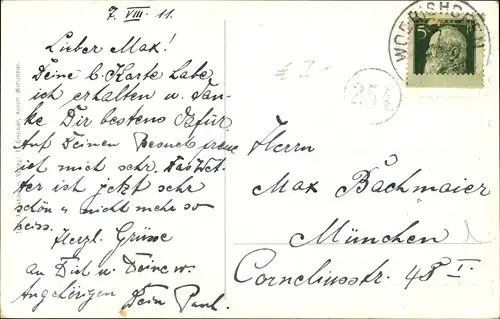 7. VIII. 11.
Lieber Max!
Deine l. Karte habe
ich erhalten u. dan-
ke Dir bestens dafür
Auf Deinen Besuch freue
ich mich sehr. Das Wet-
ter ist jetzt sehr
schön u. nicht mehr so
heiss.
Herzl. Grüsse
an Dich u. Deine w.
Angehörigen Dein Paul.
WOERISHOFEN
5
254
€ 3-
Herrn
Max Bachmaier
München
Corneliusstr. 48 I.